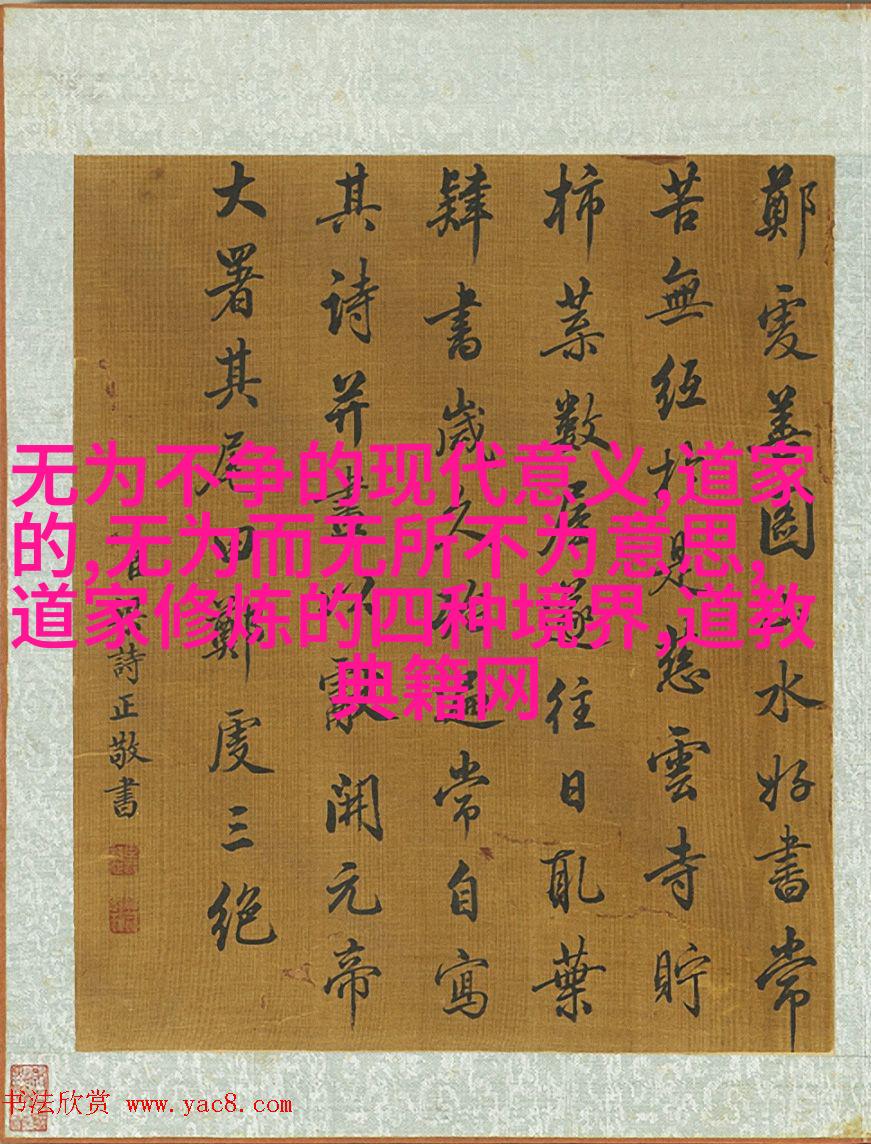 鄭虔善圖水好書常
苦無紙於見慈雲寺貯
柿葉數屋遂往日取葉
肄書歲久殆遍常自寫
其詩并畫以獻開元帝
大署其尾曰鄭虔三絕
詩正敬書
无为不争的现代意义,道家
的,无为而无所不为意思,
道家修炼的四种境界,道教
典籍网
书法欣赏 www.yac8.com